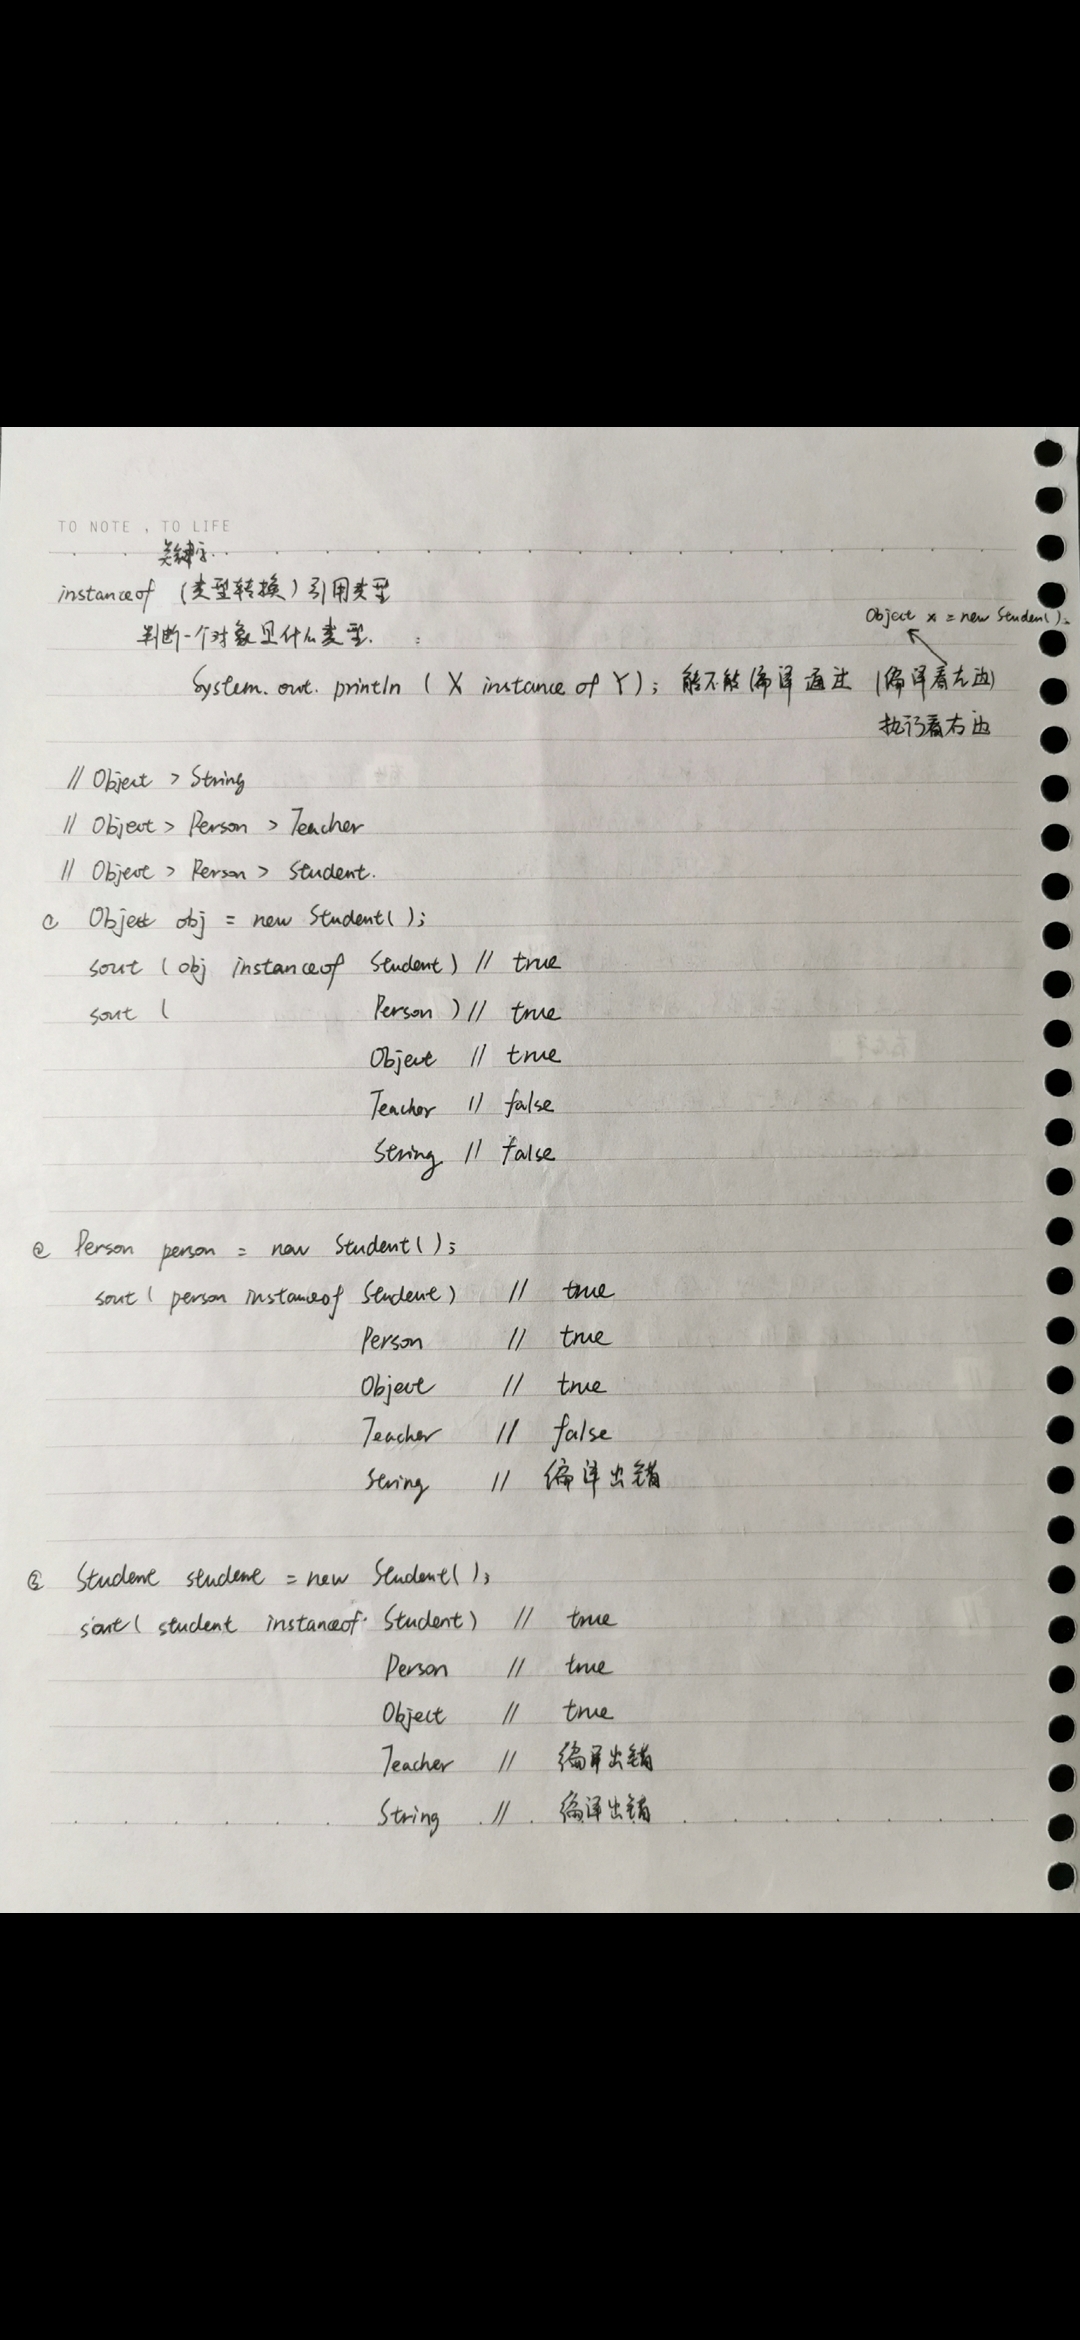 TO NOTE , TO LIFE
关键字
instanceof (类型转换) 引用类型
判断一个对象是什么类型.
Object x = new Student();
System.out.println ( X instance of Y ); 能不能编译通过 (编译看左边)
执行看右边
// Object > String
// Object > Person > Teacher
// Object > Person > Student.
① Object obj = new Student();
sout ( obj instanceof Student ) // true
sout ( Person ) // true
Object // true
Teacher // false
String // false
② Person person = new Student();
sout ( person instanceof Student ) // true
Person // true
Object // true
Teacher // false
String // 编译出错
③ Student student = new Student();
sout ( student instanceof Student ) // true
Person // true
Object // true
Teacher // 编译出错
String // 编译出错